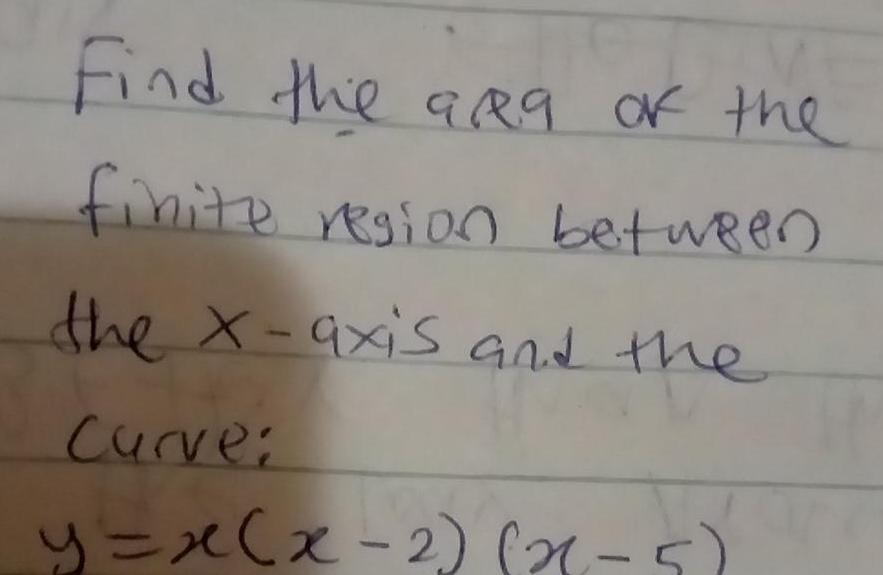 Find the area of the
finite region between
the x-axis and the
Curve:
y=x(x-2)(x-5)